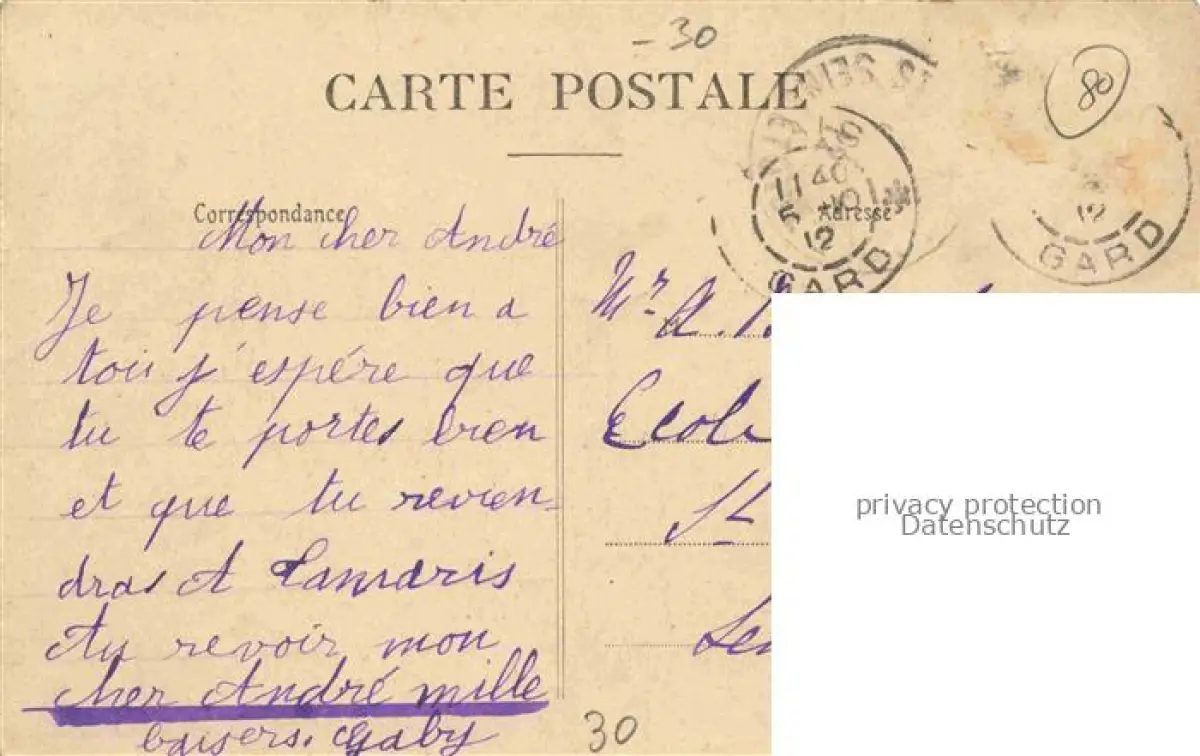 -30
CARTE POSTALE
80
GARD
11 40
5
12
GARD
12
Correspondance
Adresse
Mon cher André
Je pense bien a
toi j'espére que
tu te portes bien
et que tu revien-
dras A Tamaris
Au revoir mon
cher André mille
baisers. Gaby
30
Mr A.
Ecole
St
privacy protection
Datenschutz